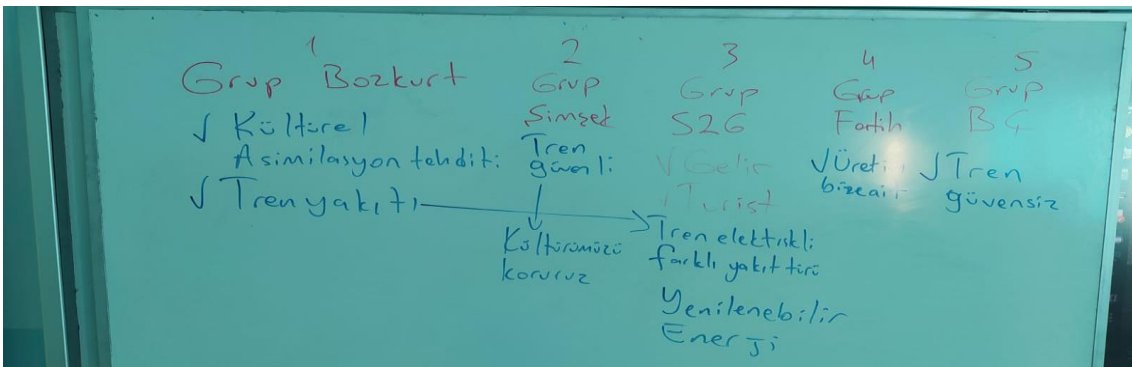 1
Grup Bozkurt
√ Kültürel
Asimilasyon tehditi
√ Tren yakıtı
2
Grup
Şimşek
Tren
güvenli
Kültürümüzü
koruruz
3
Grup
S26
√ Gelir
√ Turist
Tren elektrikli
farklı yakıt türü
Yenilenebilir
Enerji
4
Grup
Fatih
√ Üretim
5
Grup
√ Tren
güvensiz